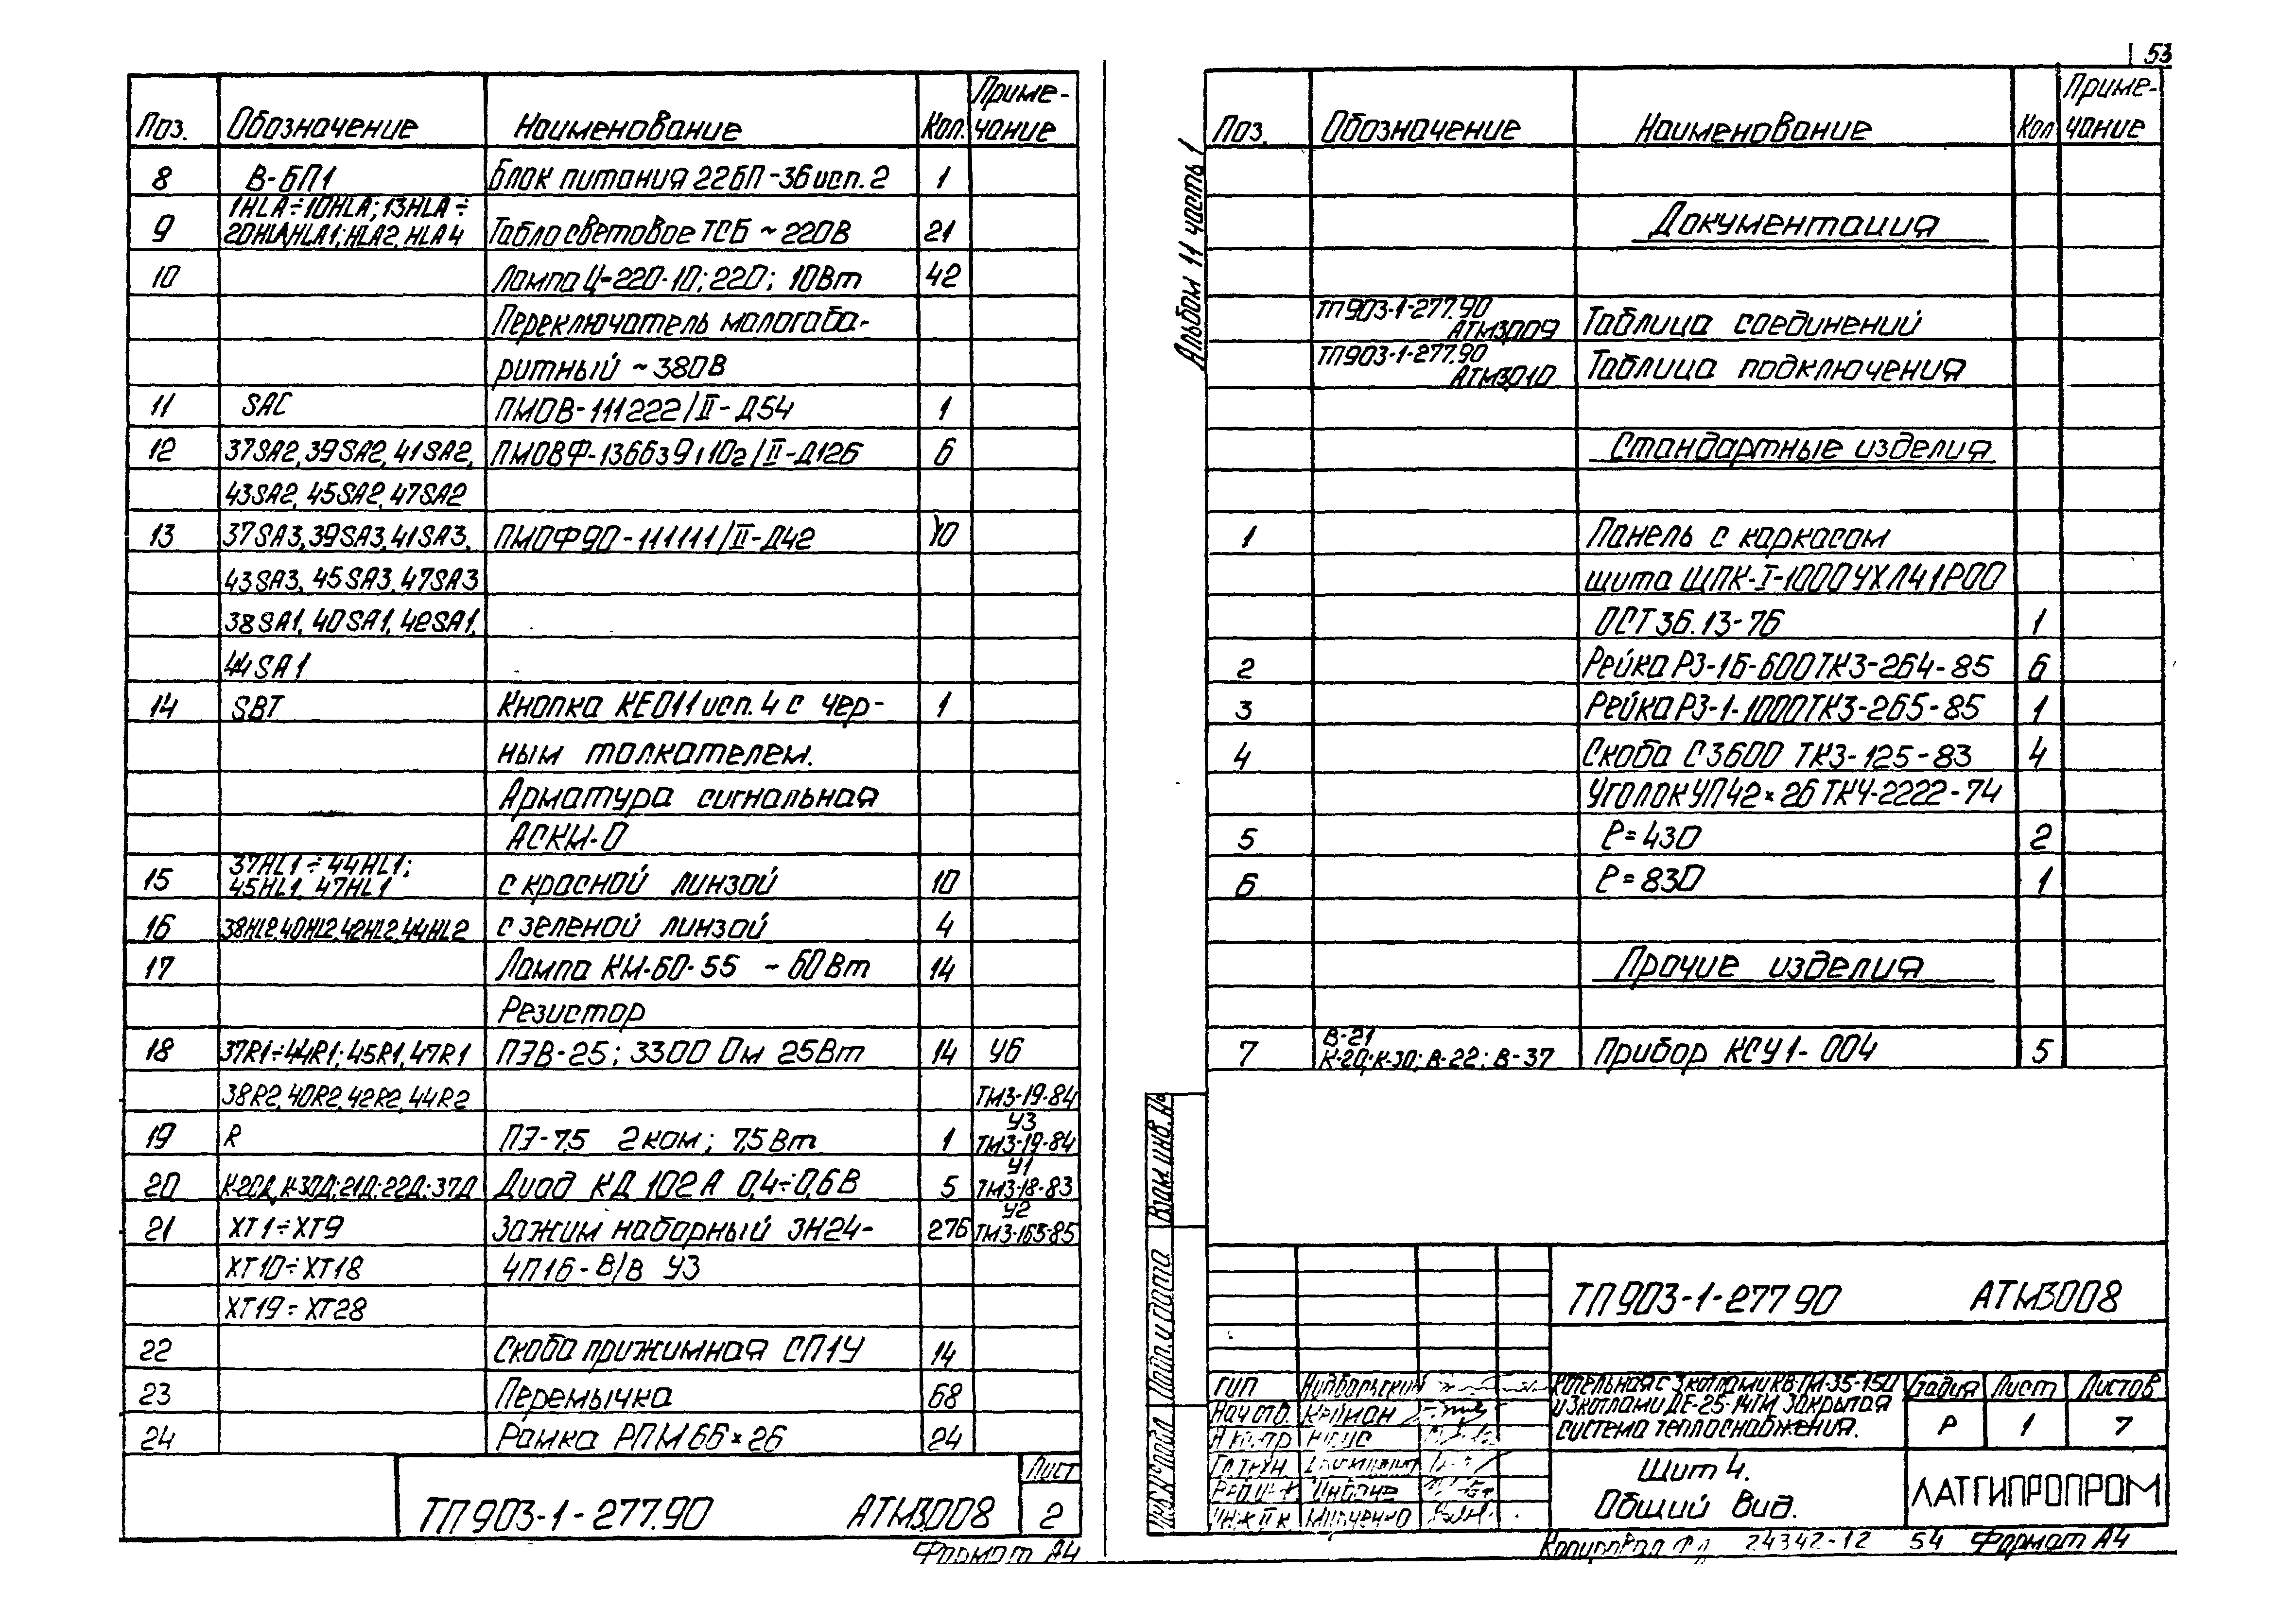 53
Поз. Обозначение Наименование Кол. Приме-
чание
8 В-БП1 Блок питания 22БП-36 исп. 2 1
1HLA÷10HLA; 13HLA÷
9 20HLA, HLA1; HLA2, HLA4 Табло световое ТСБ ~220В 21
10 Лампа Ц-220-10; 220; 10Вт 42
Переключатель малогаба-
ритный ~380В
11 SAC ПМОВ-111222/II-Д54 1
12 37SA2, 39SA2, 41SA2, 6
43SA2, 45SA2, 47SA2
13 37SA3, 39SA3, 41SA3, ПМОФ90-111111/II-Д42 10
43SA3, 45SA3, 47SA3
38SA1, 40SA1, 42SA1,
44SA1
14 SBT Кнопка КЕ011 исп. 4 с чер- 1
ным толкателем.
Арматура сигнальная
АСКМ-О
37HL1÷44HL1;
15 45HL1, 47HL1 с красной линзой 10
16 38HL2, 40HL2, 42HL2, 44HL2 с зеленой линзой 4
17 Лампа КМ-60-55 ~60Вт 14
Резистор
18 37R1÷44R1; 45R1, 47R1 ПЭВ-25; 3300 Ом 25Вт 14 У6
38R2, 40R2, 42R2, 44R2 ТМ3-19-84
У3
19 R ПЭ-7,5 2ком; 7,5Вт 1 ТМ3-19-84
У1
20 К-20Д, К-30Д; 21Д; 22Д; 37Д Диод КД 102А 0,4÷0,6В 5 ТМ3-18-83
У2
21 ХТ1÷ХТ9 Зажим наборный ЗН24- 276 ТМ3-165-85
ХТ10÷ХТ18 4П16-В/В У3
ХТ19÷ХТ28
22 Скоба прижимная СП1У 14
23 Перемычка 68
24 Рамка РПМ 66×26 24
ТП 903-1-277.90 АТМ3008
Лист
2
Формат А4
Альбом 11 часть 1
Поз. Обозначение Наименование Кол Приме-
чание
Документация
ТП903-1-277.90
АТМ3009 Таблица соединений
ТП903-1-277.90
АТМ3010 Таблица подключения
Стандартные изделия
1 Панель с каркасом
щита ЩПК-I-1000УХЛ41Р00
ОСТ 36.13-76 1
2 Рейка Р3-16-600 ТК3-264-85 6
3 Рейка Р3-1-1000 ТК3-265-85 1
4 Скоба С3600 ТК3-125-83 4
Уголок УП42×26 ТК4-2222-74
5 ℓ=430 2
6 ℓ=830 1
Прочие изделия
В-21
7 К-20; К-30; В-22; В-37 Прибор КСУ1-004 5
Взам. инв. №
Подп. и дата
Инв. № подл
ТП 903-1-277 90 АТМ3008
ГИП
Нач отд. Крейман
Н контр
Котельная с 3 котлами КВ-ТМ-35-150
и 3 котлами ДЕ-25-14ГМ Закрытая
система теплоснабжения.
Стадия Лист Листов
Р 1 7
Щит 4.
Общий вид.
ЛАТГИПРОПРОМ
Инж II к Марченко
Копировал 24342-12 54 Формат А4